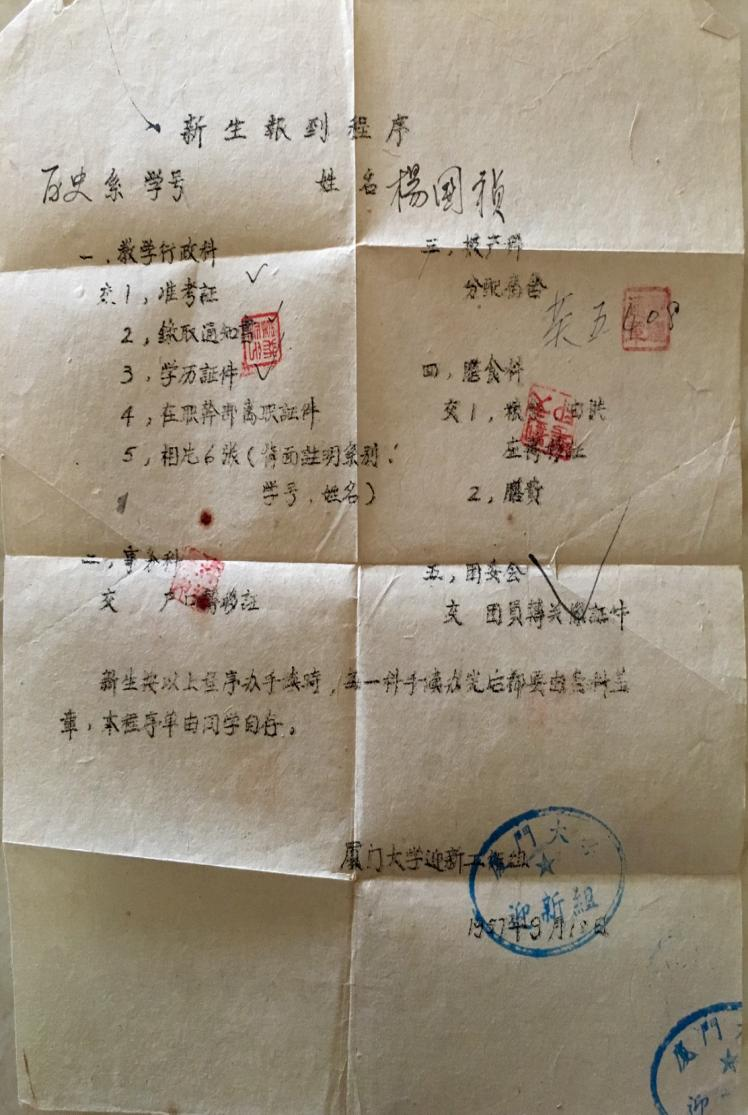 新生報到程序
历史系 学号 姓名 楊國禎
一、教学行政科
交 1，准考証
2，錄取通知書
3，学历証件
4，在职幹部离职証件
5，相片6張（背面註明系别、
学号、姓名）
二、事务科
交 户口轉移証
三、
分配宿舍
芙五408
四、膳食科
交 1，
2，膳費
五、团委会
交 团員轉关係証件
新生按以上程序办手续時，每一科手续办完后都要由各科盖
章，本程序单由同学自存。
厦门大学迎新工作組
1957年9月
廈門大学
迎新組
廈門大
迎